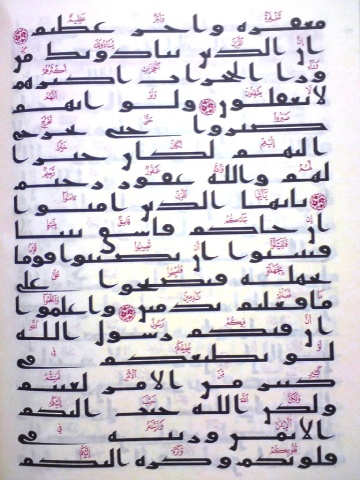 مغفره واجر عظيم
ان الذين ينادونك من
ورا الحجرات اكثرهم
لا يعقلون ولو انهم
صبروا حتى تخرج
اليهم لكان خيرا
لهم والله غفور رحيم
يايها الذين امنوا
ان جاكم فاسق بنبا
فتبينوا ان تصيبوا قوما
بجهله فتصبحوا على
ما فعلتم ندمين واعلموا
ان فيكم رسول الله
لو يطيعكم في
كثير من الامر لعنتم
ولكن الله حبب اليكم
الايمن وزينه في
قلوبكم وكره اليكم